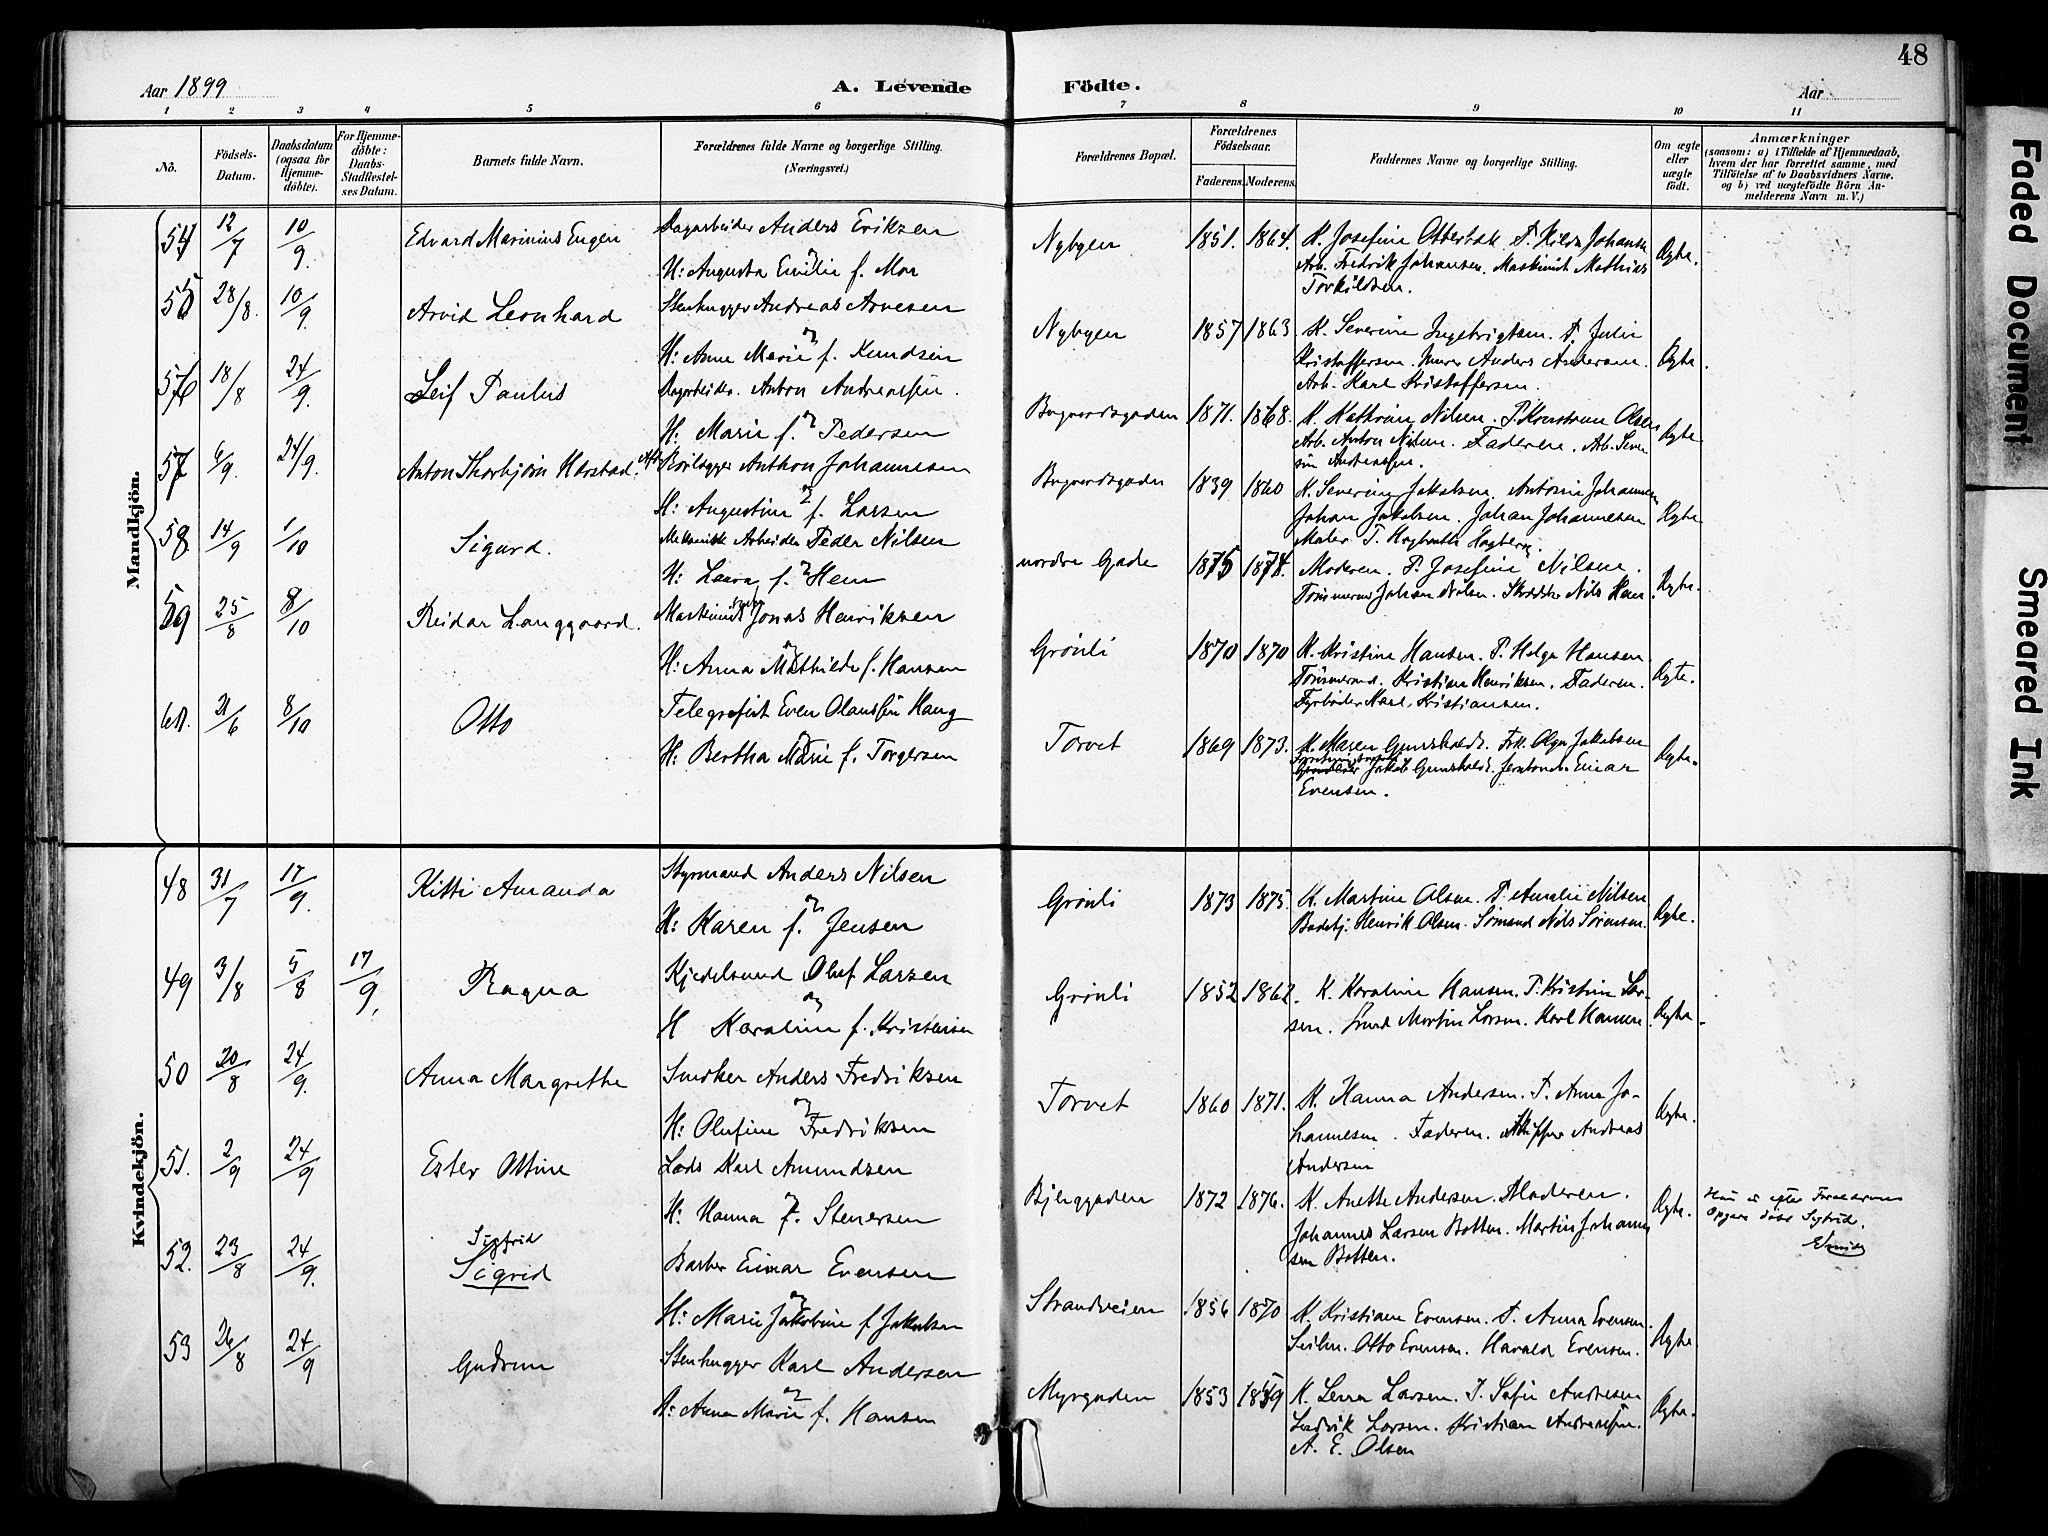 48
Aar 1899
A. Levende Födte.
Aar
1 2 3 4 5 6 7 8 9 10 11
No.
Födsels-Datum.
Daabsdatum (ogsaa for Hjemmedöbte).
For Hjemmedöbte: Daabs-Stadfæstelses Datum.
Barnets fulde Navn.
Forældrenes fulde Navne og borgerlige Stilling. (Næringsvei.)
Forældrenes Bopæl.
Forældrenes Födselsaar.
Faderens. Moderens.
Faddernes Navne og borgerlige Stilling.
Om ægte eller uægte födt.
Anmærkninger
(saasom: a) i Tilfælde af Hjemmedaab, hvem der har forrettet samme, med Tilföielse af to Daabsvidners Navne, og b) ved uægtefödte Börn Anmelderens Navn m. V.)
Mandkjön.
54 12/7 10/9. Edvard Marinius Eugen Dagarbeider Anders Eriksen
H: Augusta Emilie f. Moa
Nybyen 1851. 1864. K. Josefine Otterbæk. P. Hilda Johansen
Arb. Fredrik Johansen. Maskinist Mathias
Torkildsen.
Ægte.
55 28/8. 10/9. Arvid Leonhard Stenhugger Andreas Arvesen
H: Anne Marie f. Knudsen
Nybyen 1857 1863 K. Severine Ingebrigtsen. P. Julie
Kristoffersen. Murer Anders Andersen.
Arb. Karl Kristoffersen.
Ægte.
56 18/8 24/9. Leif Paulus Dagarbeider. Anton Andreassen.
H: Marie f. Pedersen
Bogværdsgaden 1871. 1868. K. Kathrine Nilsen. P. Konstanse Olsen
Arb. Anton Nilsen. Faderen. Arb. Seve-
rin Andreassen.
Ægte
57 6/9. 24/9. Anton Thorbjørn Harstad. Anthon Johannesen
H: Augustine f. Larsen
1839 1860 K. Severine Jakobsen. Antonie Johannesen
Johan Jakobsen. Johan Johannesen
Maler
Ægte
58 14/9 1/10 Sigurd. Mekanisk Arbeider Peder Nilsen
H: Laura f. Hem
nordre Gade 1875 1874. Moderen. P. Josefine Nilsen.
Tømmermand Johan Nilsen. Nils Hem
Ægte.
59 25/8 8/10 Reidar Langgaard. Jonas Henriksen
H: Anna Mathilde f. Hansen
Grønli 1870 1870 K. Kristine Hansen. P. Helga Hansen.
Tømmermd. Kristian Henriksen. Faderen.
Fyrbøder Karl Kristiansen.
Ægte.
60. 21/6 8/10 Otto Telegrafist Even Olaussen Haug
H: Bertha Marie f. Torgersen
Torvet 1869 1873. K. Maren Gunshold. Frk. Olga Jakobsen
Jakob Gunshold. Einar
Evensen.
Ægte.
Kvindekjön.
48 31/7 17/9. Kitti Amanda Styrmand Anders Nilsen
og
H: Karen f. Jensen
Grønli 1873 1875. K. Martine Olsen. P. Amalie Nilsen
Henrik Olsen. Sømand Nils Sørensen.
Ægte.
49 3/8 5/8 17/9. Ragna Kjedelsmed Oluf Larsen
og
H Karoline f. Kristensen
Grønli 1852 1862. K. Karoline Hansen. P. Kristine Lar-
sen. Smed Martin Larsen. Karl Hansen
Ægte.
50 20/8 24/9. Anna Margrethe Snedker Anders Fredriksen
og
H: Olufine Fredriksen
Torvet 1860 1871. K. Hanna Andersen. P. Anna Jo-
hannesen. Faderen. Skipper Andreas
Andersen
Ægte.
51. 2/9 24/9 Ester Ottine Lods Karl Amundsen
H: Hanna f. Stenersen
Bjerggaden 1872 1876. K. Anette Andersen. Moderen.
Johannes Larsen Botten. Martin Johannes-
sen Botten.
Ægte.
Hun er efter Forældrenes
Opgave døbt Sigfrid.
52. 23/8 24/9. Sigfrid
Sigrid Barber Einar Evensen
og
H: Marie Jakobine f. Jakobsen
Strandveien 1856 1870 K. Kristiane Evensen. P. Anna Evensen.
Otto Evensen. Harald Evensen.
Ægte
53 26/8 24/9 Gudrun Stenhugger Karl Andersen
og
H: Anna Marie f. Hansen
Myrgaden 1853 1859 K. Lena Larsen. P. Sofie Andresen
Ludvik Larsen. Kristian Andreassen.
A. E. Olsen
Ægte.
Faded Document
Smeared Ink